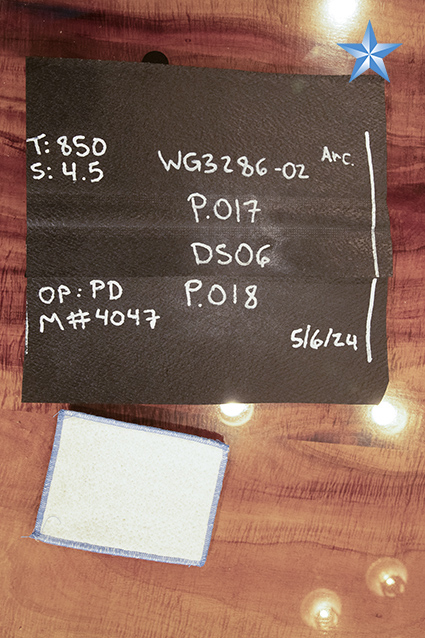 T: 850
S: 4.5
WG3286-02
Arc.
P.017
DS06
P.018
OP: PD
M#4047
5/6/24